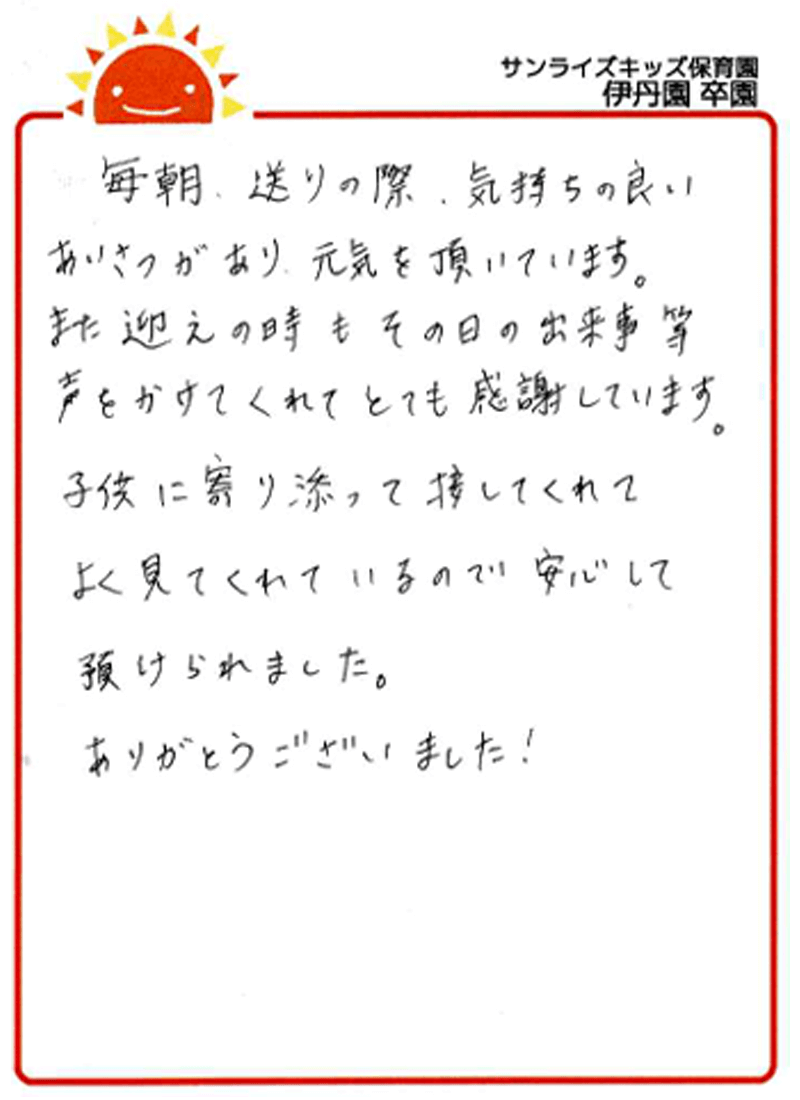 サンライズキッズ保育園
伊丹園 卒園
毎朝、送りの際、気持ちの良い
あいさつがあり、元気を頂いています。
また迎えの時もその日の出来事等
声をかけてくれてとても感謝しています。
子供に寄り添って接してくれて
よく見てくれているので安心して
預けられました。
ありがとうございました!